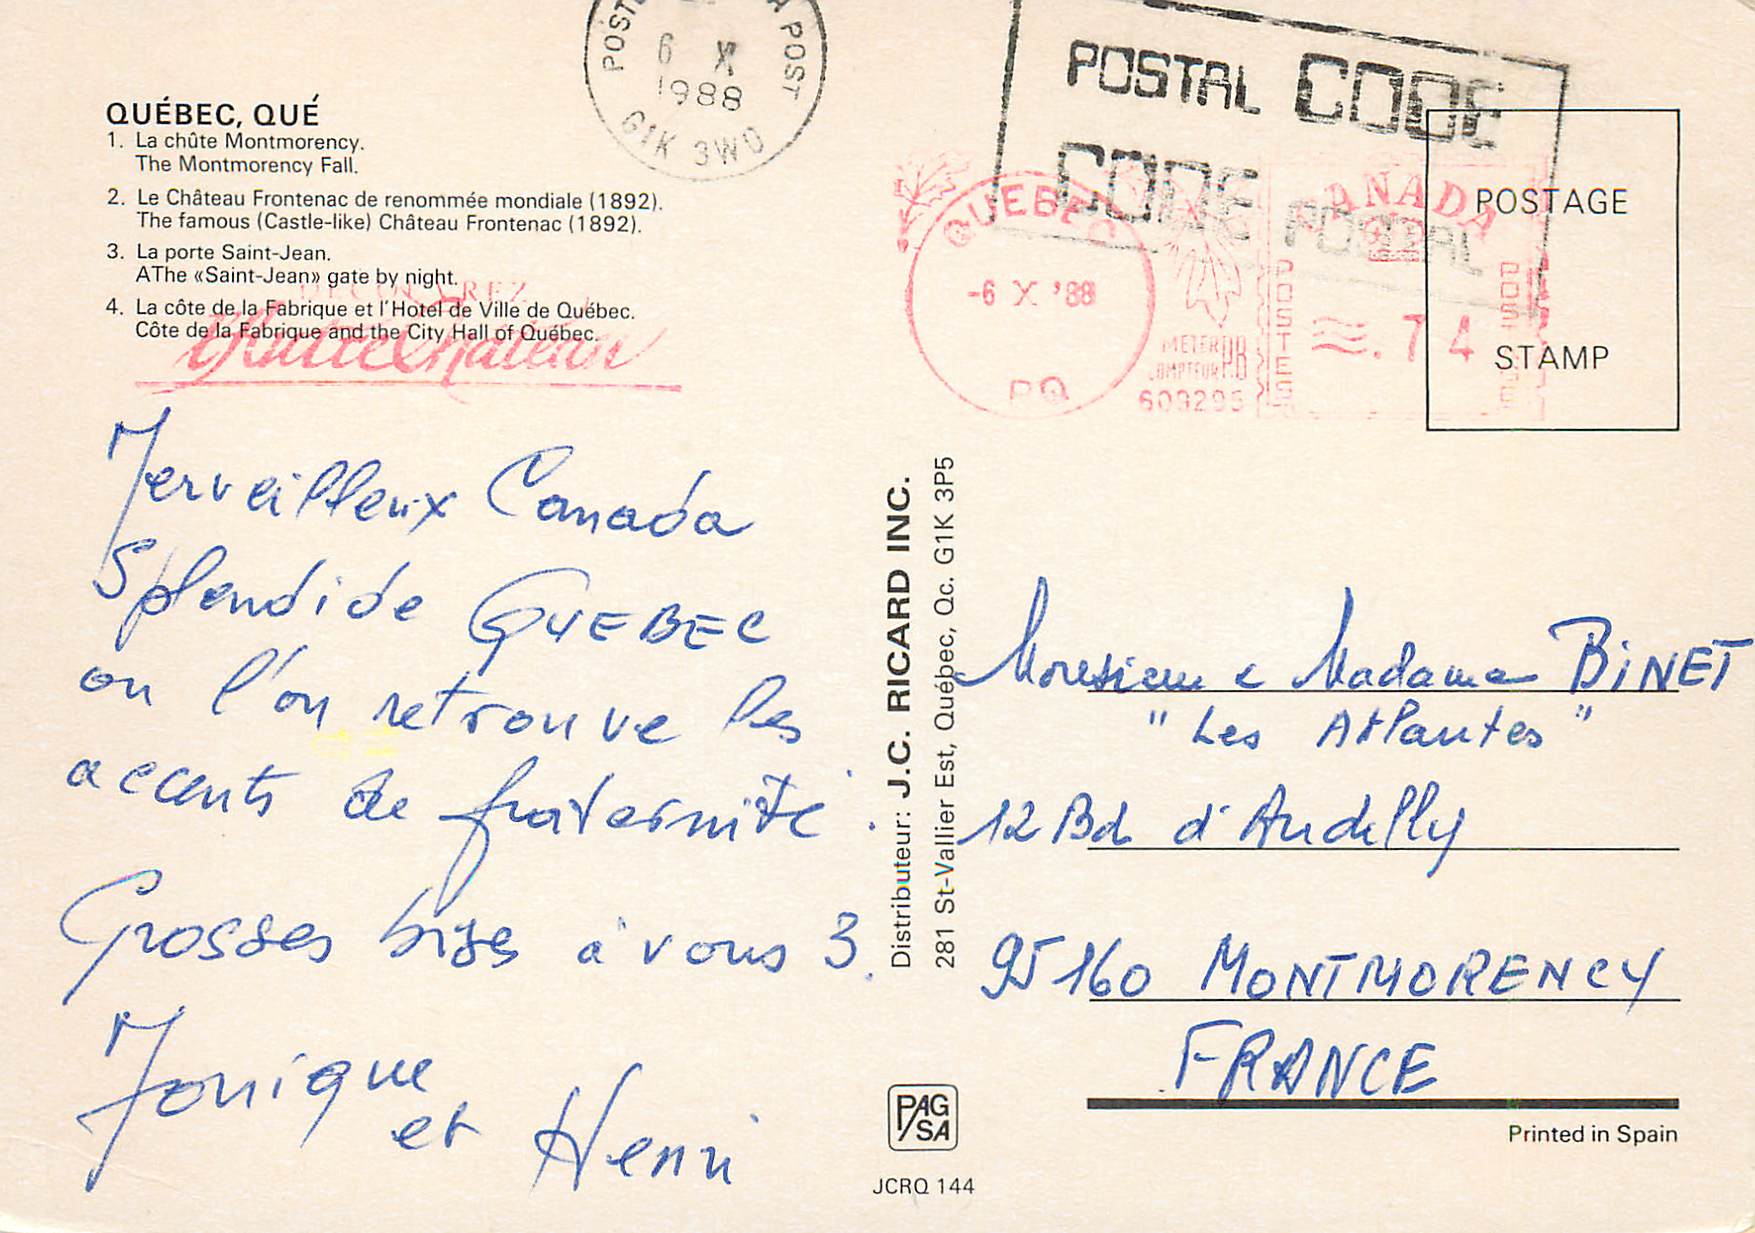 POSTAL CODE
CODE POSTAL
POST
6 X
1988
G1K 3W0
QUÉBEC, QUÉ
1. La chûte Montmorency.
The Montmorency Fall.
2. Le Château Frontenac de renommée mondiale (1892).
The famous (Castle-like) Château Frontenac (1892).
3. La porte Saint-Jean.
AThe «Saint-Jean» gate by night.
4. La côte de la Fabrique et l'Hotel de Ville de Québec.
Côte de la Fabrique and the City Hall of Québec.
QUEBEC
-6 X '88
PQ
METER PB
COMPTEUR
609295
CANADA
POSTES
.74
POSTAGE
STAMP
Merveilleux Canada
Splendide QUEBEC
ou l'on retrouve les
accents de fraternité.
Grosses bises à vous 3.
Monique
et Henri
Distributeur: J.C. RICARD INC.
281 St-Vallier Est, Québec, Qc. G1K 3P5
Monsieur e Madame BINET
"Les Atlantes"
12 Bd d'Andilly
95160 MONTMORENCY
FRANCE
PAG
SA
JCRQ 144
Printed in Spain